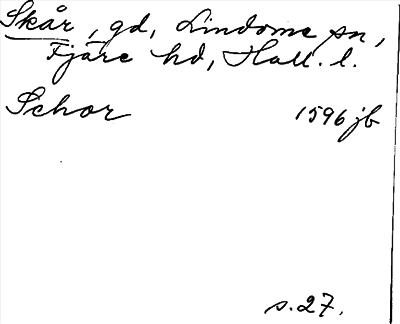 Skår, gd, Lindome sn,
Fjäre hd, Hall. l.
Schor 1596 jb
s. 27.